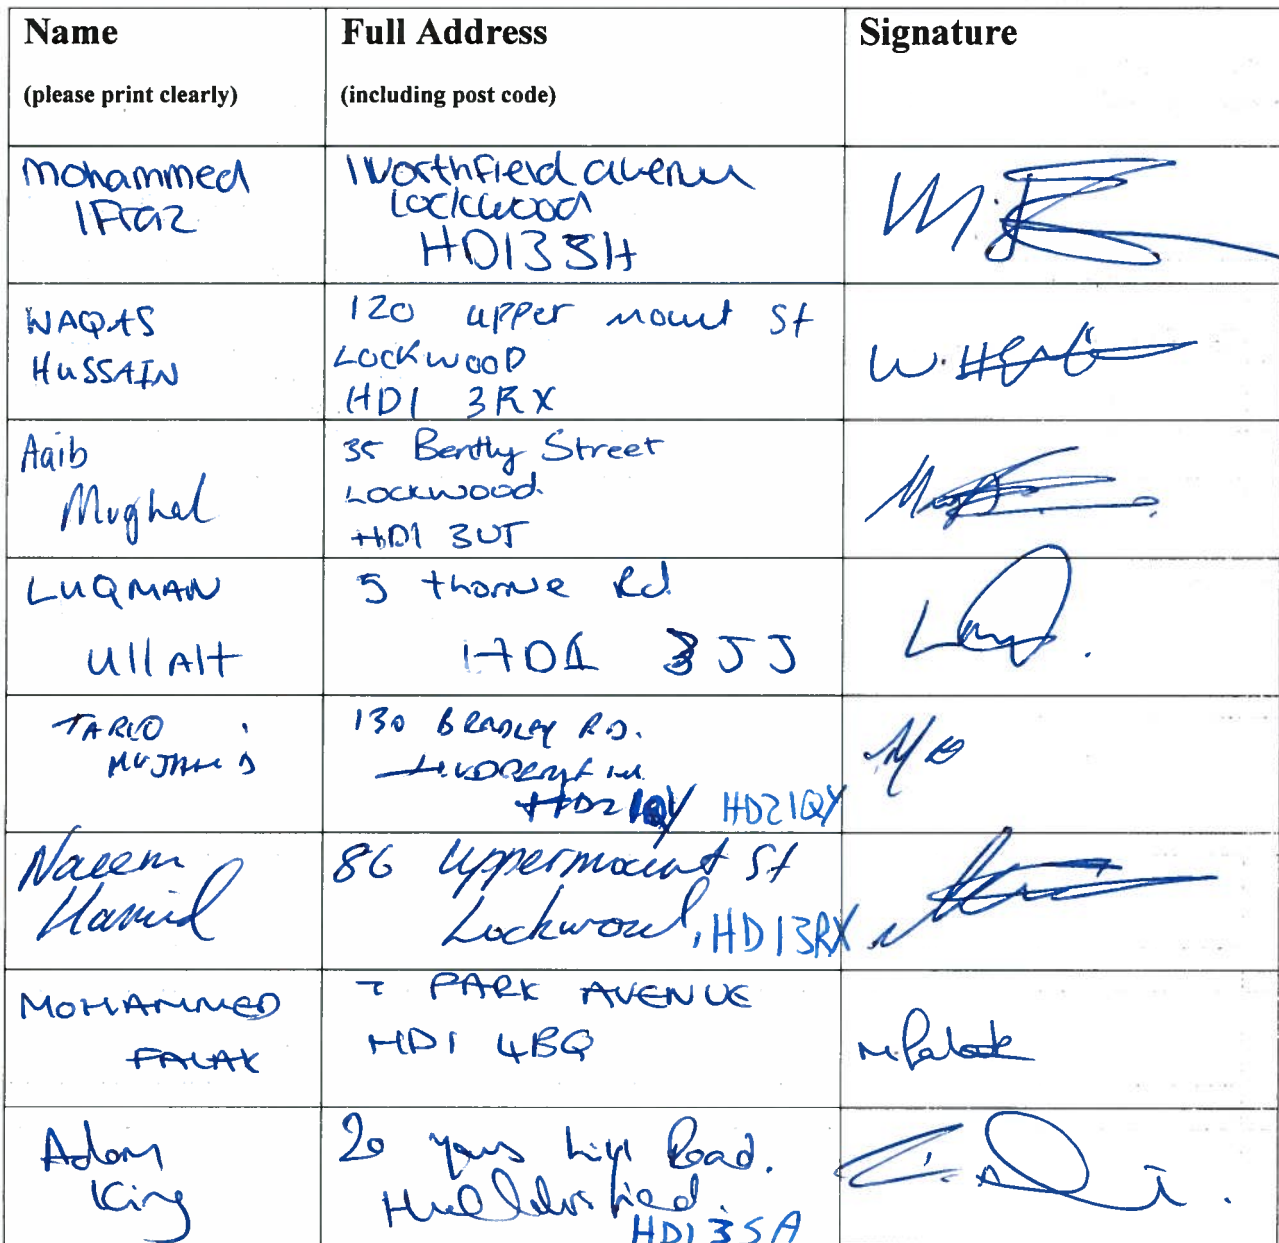 Name
(please print clearly)
Full Address
(including post code)
Signature
Mohammed
IFTAZ
1 Northfield avenu
Lockwood
HD1 3SH
WAQAS
HUSSAIN
120 upper mount St
LOCKWOOD
HD1 3RX
W.
Aqib
Mughal
35 Bently Street
Lockwood
HD1 3UT
LUQMAN
UllAH
5 thorne Rd
HD1 3JJ
TARIQ
MUJAHID
130 BRADLEY RD.
HD2 1QY HD2 1QY
Naeem
Hamid
86 uppermount St
Lockwood, HD1 3RX
MOHAMMED
FALAK
7 PARK AVENUE
HD1 4BQ
M. Falak
Adam
King
20 yews hill Road.
Huddersfield.
HD1 3SA